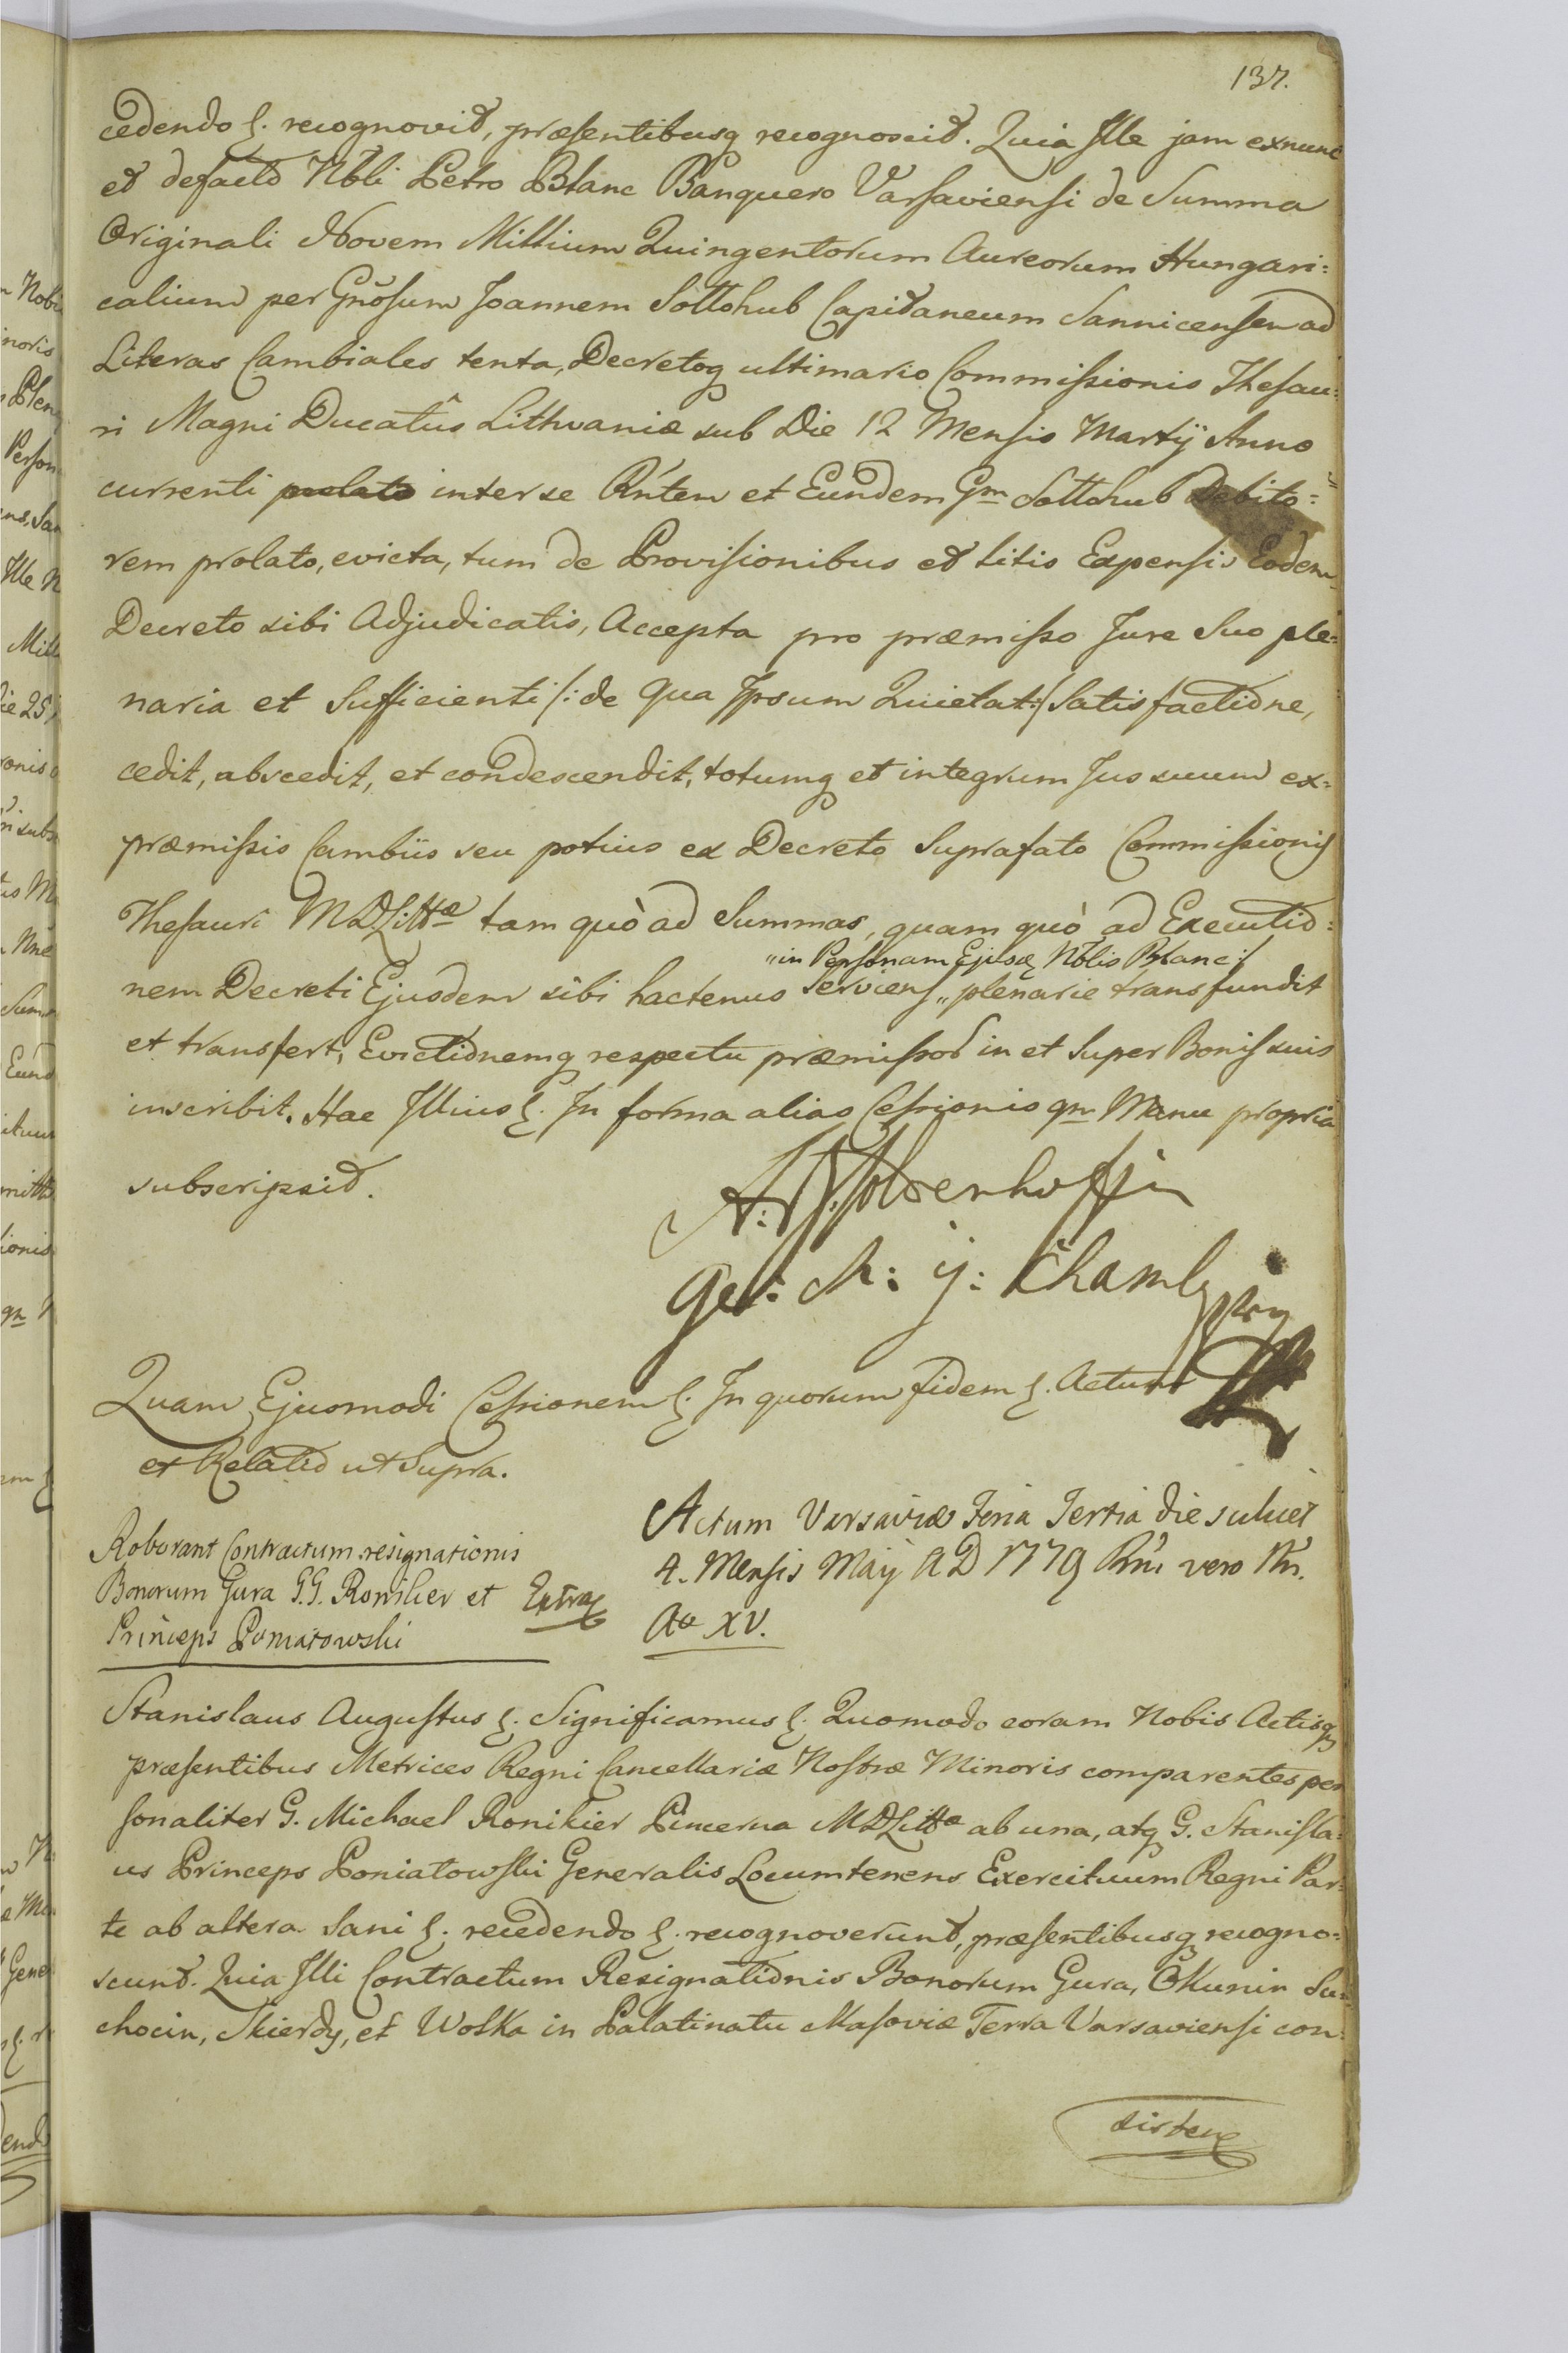 137.
cedendo &. recognovit, præsentibusq recognoscit. Quia Ille jam exnunc
et defacto Nbli Petro Blanc Banquero Varsaviensi de Summa
Originali Novem Millium Quingentorum Aureorum Hungari=
calium per Gnosum Joannem Sottohub Capitaneum Sannicensem ad
Literas Cambiales tenta, Decretoq ultimario Commissionis Thesau=
ri Magni Ducatûs Lithvaniæ sub Die 12 Mensis Martij Anno
currenti prolato inter se Rntem et Eundem Gm Sottohub Debito=
rem prolato, evicta, tum de Provisionibus et Litis Expensis Eodem
Decreto sibi Adjudicatis, Accepta pro præmisso Jure Suo ple=
naria et Sufficienti /: de qua Ipsum Quietat :/ Satisfactione,
cedit, abscedit, et condescendit, totumq et integrum Jus suum ex=
præmissis Cambiis seu potius ex Decreto Suprafato Commissionis
Thesauri MDLittæ tam quò ad Summas, quam quò ad Executio=
„in Personam Ejusd Nblis Blanc :/
nem Decreti Ejusdem sibi hactenus Serviens „ plenarie transfundit
et transfert, Evictionemq respectu præmissor in et Super Bonis suis
inscribit. Hac Illius &. In forma alias Cessionis qm Manu propria
subscripsit.
Quam Ejusmodi Cessionem &. In quorum fidem &. Actum
et Relatio ut Supra.
Actum Varsaviæ Feria Tertia die scilicet
4. Mensis Maij AD 1779 Rni vero Nri.
Ao XV.
Roborant Contractum resignationis
Bonorum Gura G.G. Ronikier et Extrax
Princeps Poniatowski
Stanislaus Augustus &. Significamus &. Quomodo coram Nobis Actisq
præsentibus Metrices Regni Cancellariæ Nostræ Minoris comparentes per
sonaliter G. Michael Ronikier Pincerna MDLittæ ab una, atq G. Stanisla=
us Princeps Poniatowski Generalis Locumtenens Exercituum Regni Par=
te ab altera Sani &. recedendo &. recognoverunt, præsentibusq recogno=
scunt. Quia Illi Contractum Resignationis Bonorum Gura, Okunin Su=
chocin, Skierdy, et Wolka in Palatinatu Masoviæ Terra Varsaviensi con=
sisten